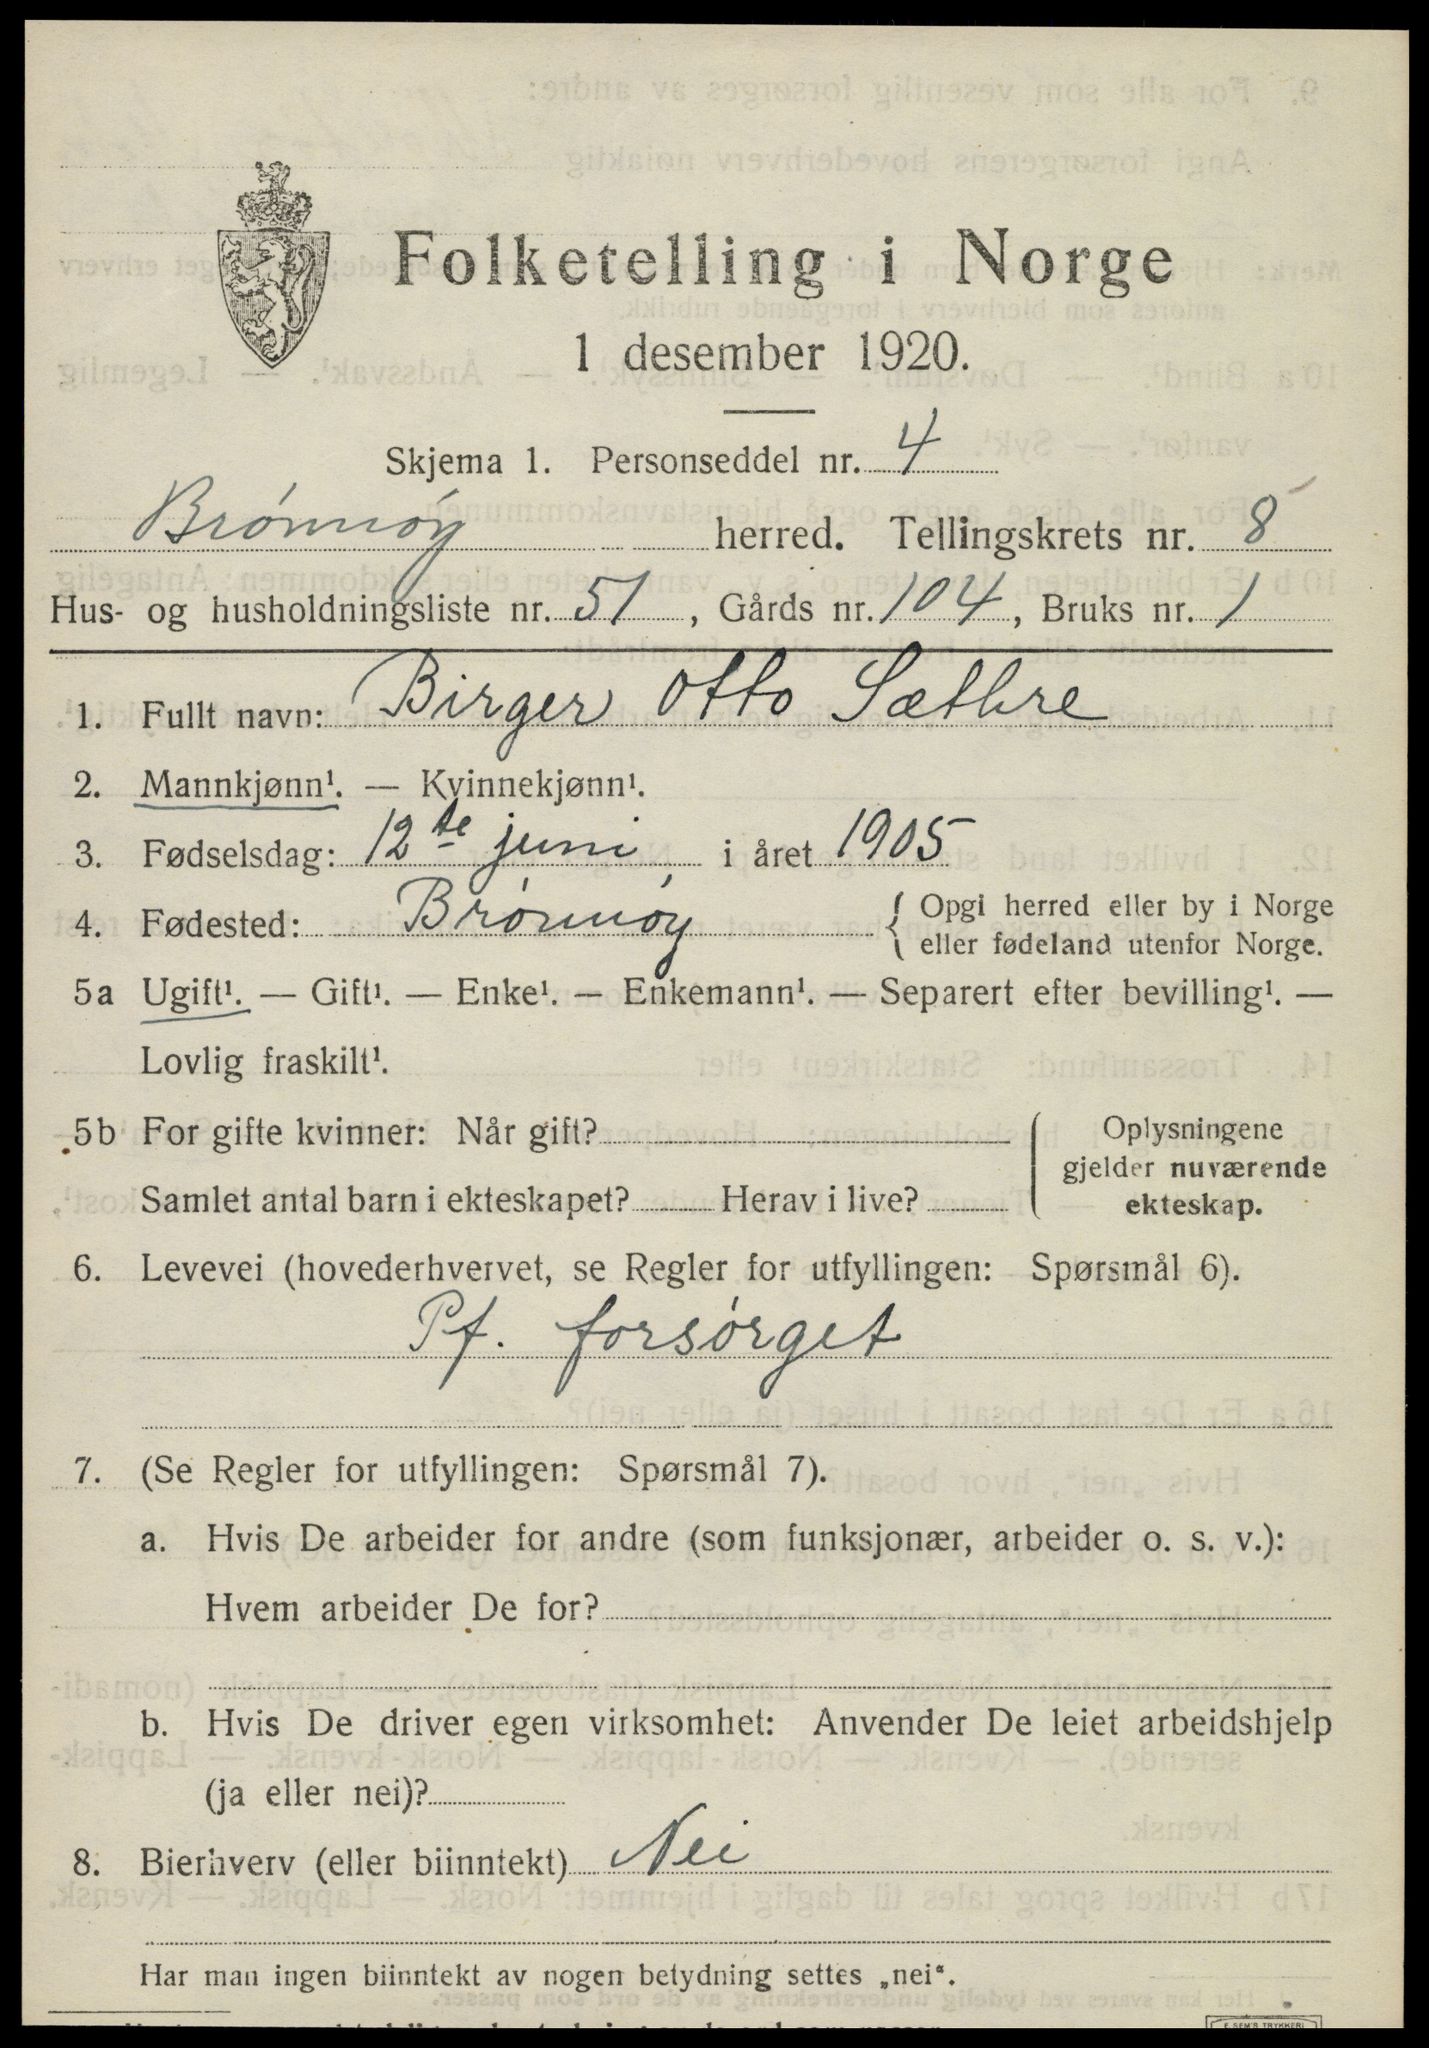 Folketelling i Norge
1 desember 1920.
Skjema 1. Personseddel nr. 4
Brónnóy herred. Tellingskrets nr. 8
Hus- og husholdningsliste nr. 51, Gårds nr. 104, Bruks nr. 1
1. Fullt navn: Birger Otto Sæthre
2. Mannkjønn¹. — Kvinnekjønn¹.
3. Fødselsdag: 12te juni i året 1905
4. Fødested: Brónnóy { Opgi herred eller by i Norge
eller fødeland utenfor Norge.
5a Ugift¹. — Gift¹. — Enke¹. — Enkemann¹. — Separert efter bevilling¹. —
Lovlig fraskilt¹.
5b For gifte kvinner: Når gift?
Samlet antal barn i ekteskapet? Herav i live?
Oplysningene
gjelder nuværende
ekteskap.
6. Levevei (hovederhvervet, se Regler for utfyllingen: Spørsmål 6).
Pf. forsórget
7. (Se Regler for utfyllingen: Spørsmål 7).
a. Hvis De arbeider for andre (som funksjonær, arbeider o. s. v.):
Hvem arbeider De for?
b. Hvis De driver egen virksomhet: Anvender De leiet arbeidshjelp
(ja eller nei)?
8. Bierhverv (eller biinntekt) Nei
Har man ingen biinntekt av nogen betydning settes „nei“.